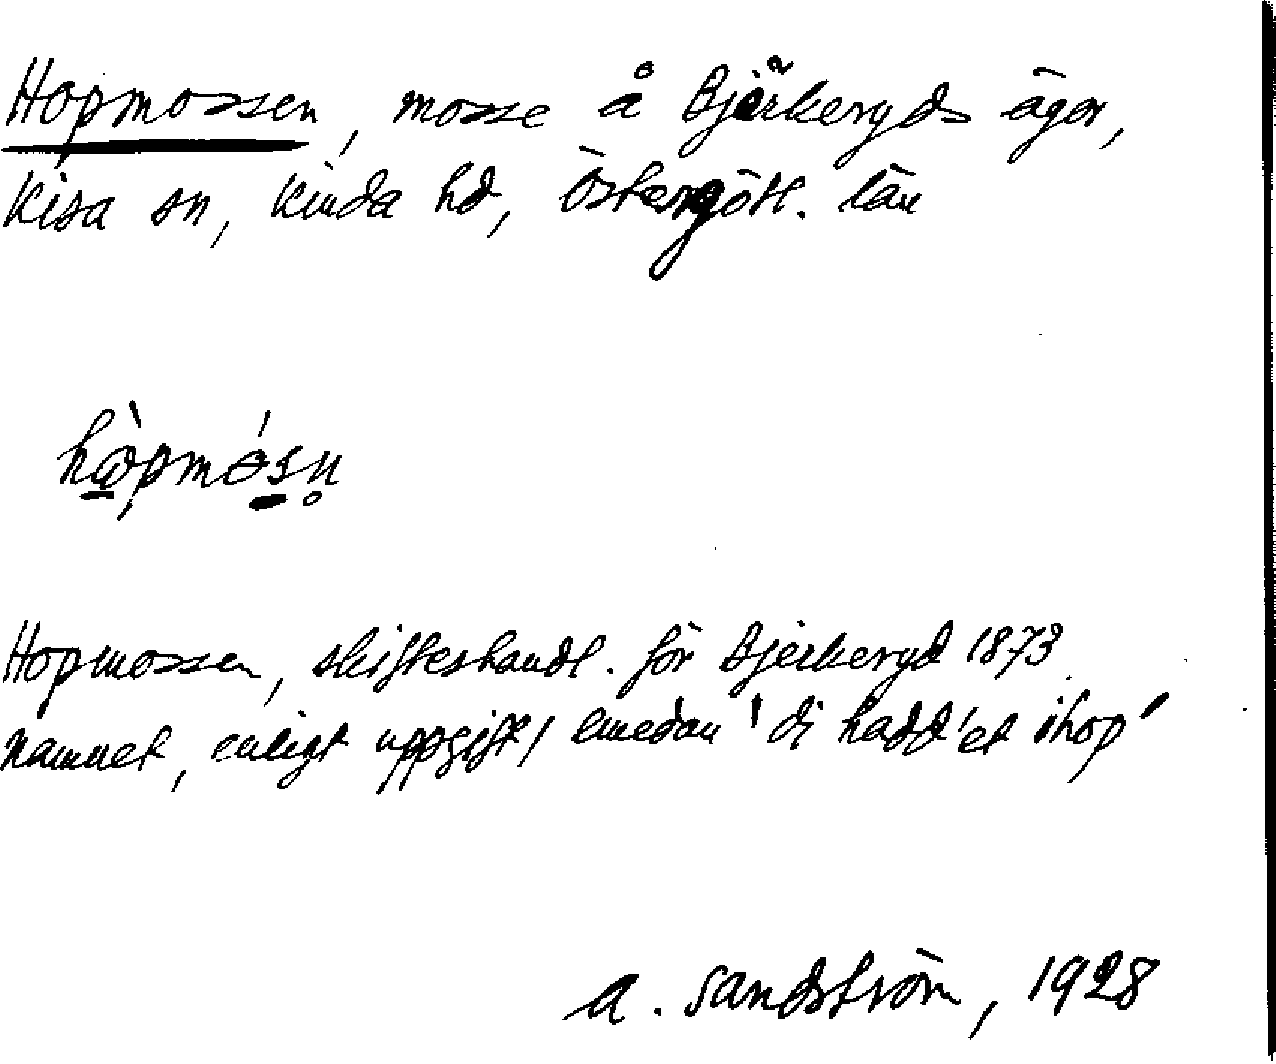 Hopmossen, mosse å Bjärkeryds ägor,
Kisa sn, Kinda hd, Östergötl. län
Hopmossen, skifteshandl. för Bjerkeryd 1873.
Namnet, enligt uppgift, emedan "di hadd'et ihop"
A. Sandström, 1928